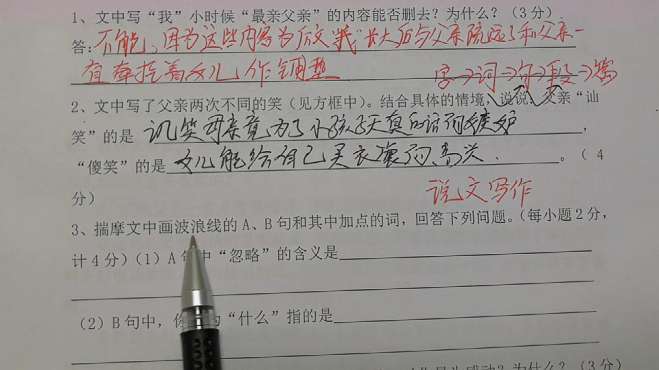 1、文中写“我”小时候“最亲父亲”的内容能否删去？为什么？（3分）
答：不能，因为这些内容为后文“我”长大后与父亲疏远了和父亲一
直牵挂着女儿作铺垫 字→词→句→段→篇
2、文中写了父亲两次不同的笑（见方框中）。结合具体的情境，说说，父亲“讪
笑”的是 讥笑母亲竟为了小孩子天真的话而嫉妒 ，
“傻笑”的是 女儿能给自己买衣裳而高兴 。（4
分） 说文写作
3、揣摩文中画波浪线的A、B句和其中加点的词，回答下列问题。（每小题2分，
计4分）（1）A句中“忽略”的含义是
（2）B句中， 的“什么”指的是
为什么？（3分）